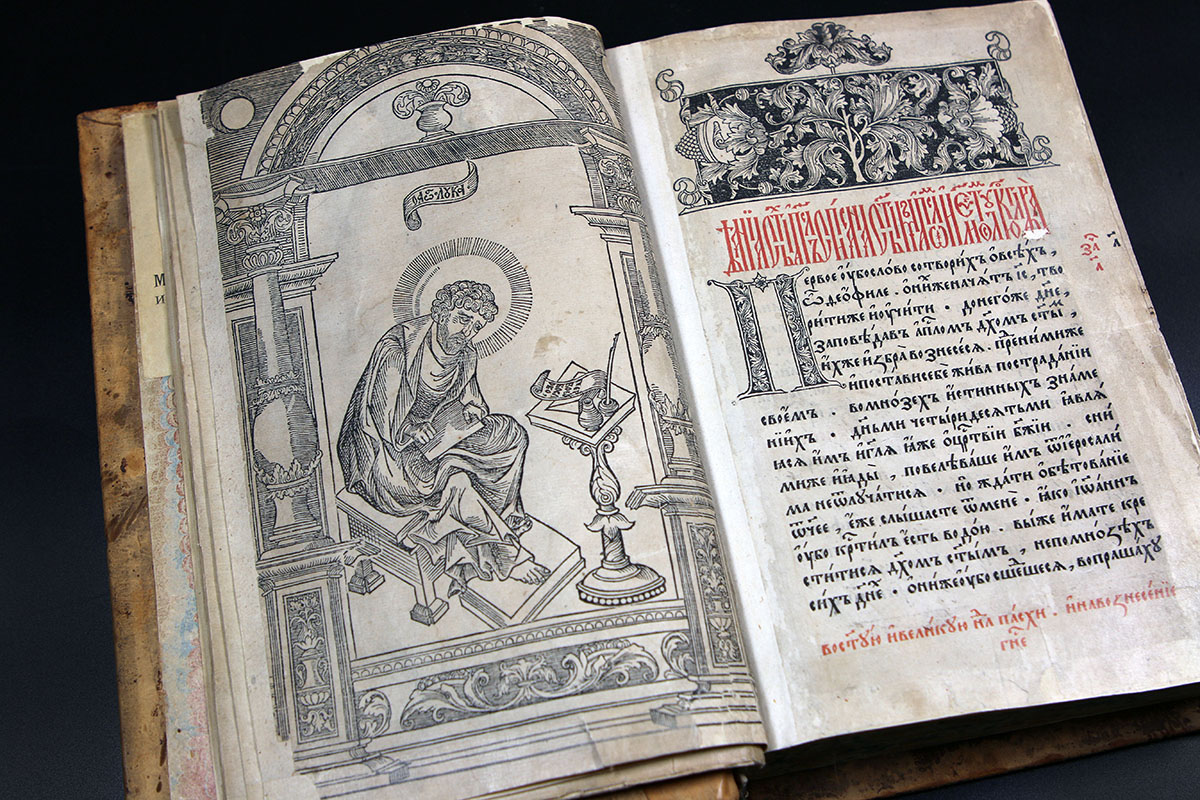 ЛꙋКА
М
и
первое ᲂу҆бо слово сотворихъ ѡ҆ всѣхъ,
ѽ ѳео́филе · ѡ҆ ниже начѧтъ і҆с҃, тво
ри́ти же и҆ ᲂу҆чи́ти · до негѡже дн҃е,
заповѣдавъ а҆пⷭ҇ломъ дх҃омъ ст҃ымъ,
и҆хже и҆ꙁбра̀ воꙁнесе́сѧ · пред̾ ни́миже
и҆ постави себѐ жива пострада́нїи
свое́мъ · во мно́ꙁѣхъ и҆́стинныхъ ꙁна́ме
нїи́хъ · дн҃ьми четы́ридесѧтьми ꙗ҆влѧ́
ѧсѧ и҆̀мъ и҆ гл҃ѧ ꙗ҆же ѡ҆ црⷭ҇твїи бж҃їи · с ни́
миже и҆ ꙗ҆ды̀, повелѣва́ше и҆̀мъ ѿ і҆еросали́
ма не ѿлꙋча́тисѧ · но жда́ти ѡ҆бѣтова́нїе
ѿчее, є҆́же слы́шасте ѿ менѐ · ꙗ҆́ко і҆ѡа́ннъ
ᲂу҆́бо крⷭ҇ти́лъ є҆́сть водо́ю · вы́ же и҆́мате кре
сти́тисѧ дх҃омъ ст҃ымъ, не по мно́ꙁѣхъ
си́хъ дн҃ехъ · ѡ҆ни́же ᲂу҆̀бо сше́дшесѧ, вопраша́хꙋ
во ст҃ꙋю и҆ вели́кꙋю нл҃ѧ па́схи · и҆ на воꙁнесе́нїе
гн҃е